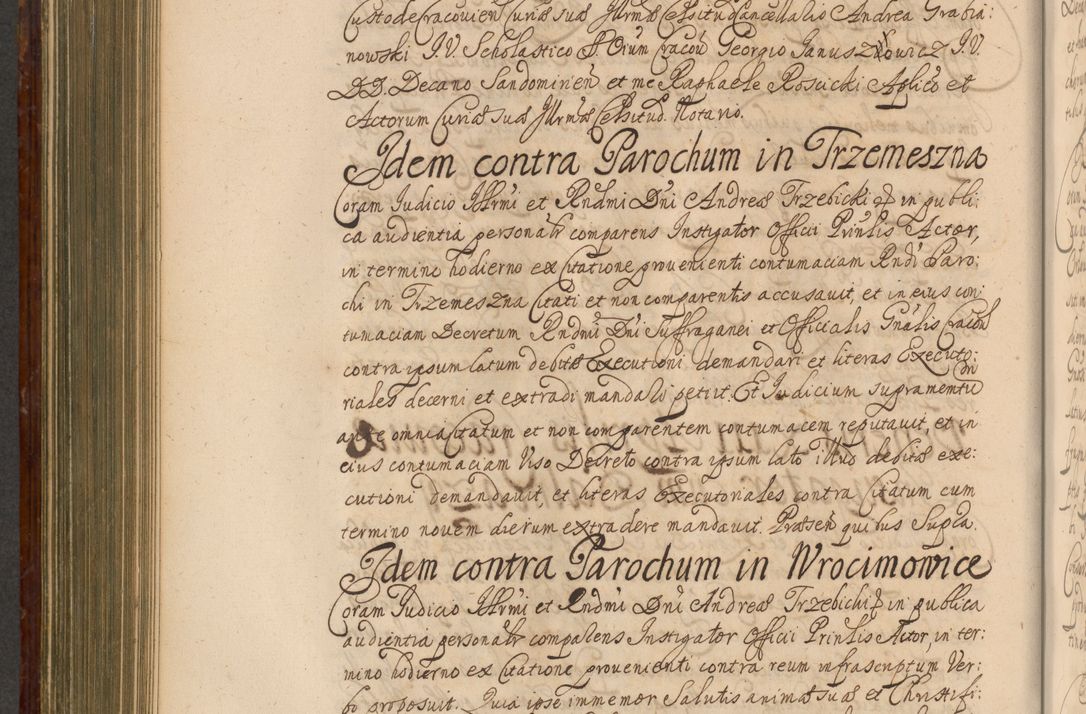 Custode Cracovien Curiæ suæ Illrmæ Celsitud Cancellario Andrea Grabia:
nowski I.V. Scholastico SS Orum Cracov Georgio Januszkowicz I.V.
DD. Decano Sandomirien et me Raphaele Roscicki Aplico et
Actorum Curiæ suæ Illrmæ Celsitud. Notario.
Idem contra Parochum in Trzemeszna
Coram Judicio Illrmi et Rndmi Dni Andreæ Trzebicki & in publi:
ca audientia personalr comparens Instigator Officii Prinlis Actor,
in termino hodierno ex Citatione provenienti contumaciam Rndi Paro:
chi in Trzemeszna Citati et non comparentis accusavit, et in eius con:
tumaciam Decretum Rndmi Dni Suffraganei et Officialis Gnalis Cracov
contra ipsum latum debitæ Executioni demandari et literas Executo:
riales decerni et extradi mandari petiit. Et Judicium supramemtu
ante omnia Citatum et non comparentem contumacem reputavit, et in
eius contumaciam Viso Decreto contra ipsum lato illud debitæ exe:
cutioni demandavit, et literas Executoriales contra Citatum cum
termino novem dierum extradere mandavit. Præsen quibus Supra.
Idem contra Parochum in Wrocimowice
Coram Judicio Illrmi et Rndmi Dni Andreæ Trzebicki & in publica
audientia personalr comparens Instigator Officii Prinlis Actor, in ter:
mino hodierno ex Citatione provenienti contra reum infrascriptum Ver:
bo proposuit. Quia ipse immemor Salutis animæ suæ et Christifi: